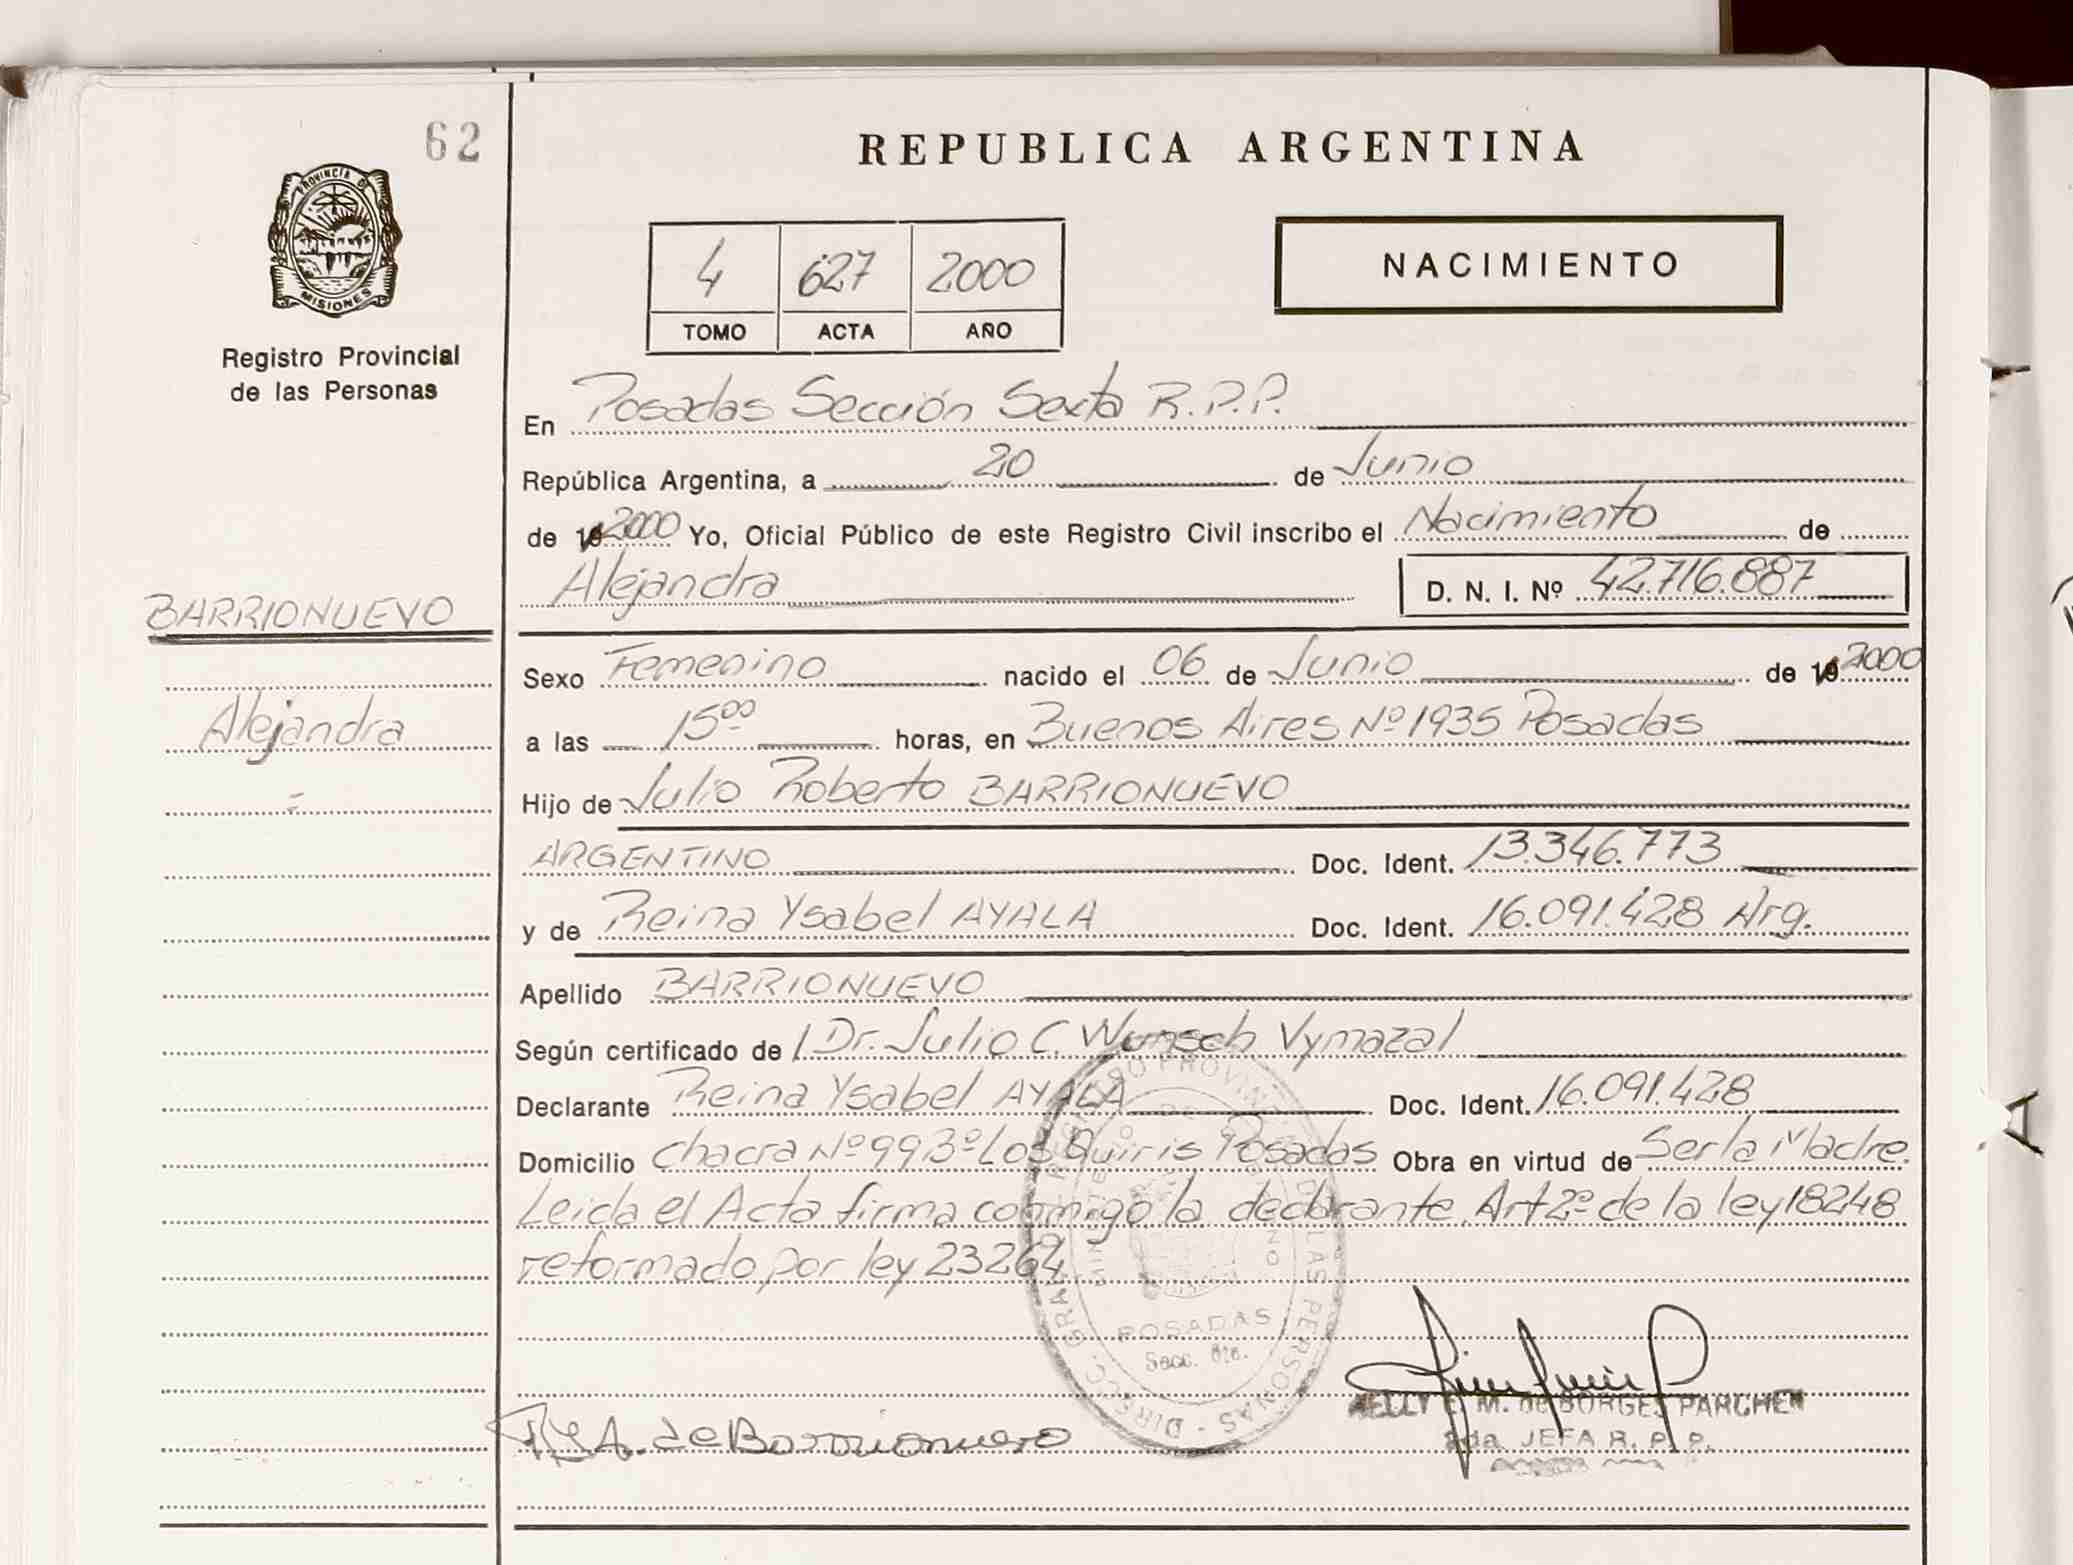 62
REPUBLICA ARGENTINA
PROVINCIA DE
MISIONES
Registro Provincial
de las Personas
4 627 2000
TOMO ACTA AÑO
NACIMIENTO
En Posadas Sección Sexta R.P.P.
República Argentina, a 20 de Junio
de 19 2000 Yo, Oficial Público de este Registro Civil inscribo el Nacimiento de
Alejandra D. N. I. Nº 42.716.887
BARRIONUEVO
Alejandra
Sexo Femenino nacido el 06 de Junio de 19 2000
a las 15⁰⁰ horas, en Buenos Aires Nº 1935 Posadas
Hijo de Julio Roberto BARRIONUEVO
ARGENTINO Doc. Ident. 13.346.773
y de Reina Ysabel AYALA Doc. Ident. 16.091.428 Arg.
Apellido BARRIONUEVO
Según certificado de Dr. Julio C. Wunsch Vymazal
Declarante Reina Ysabel AYALA Doc. Ident. 16.091.428
Domicilio Chacra Nº 99 Bº Los Quiris Posadas Obra en virtud de Ser la Madre.
Leida el Acta firma conmigo la declarante. Art 2º de la ley 18248
reformado por ley 23264
DIRECC. GRAL. REGISTRO PROVINCIAL DE LAS PERSONAS
POSADAS
Secc. 6ta.
R.Y.A. de Barrionuevo
NELLY E. M. de BORGES PARCHEN
2da. JEFA R. P. P.